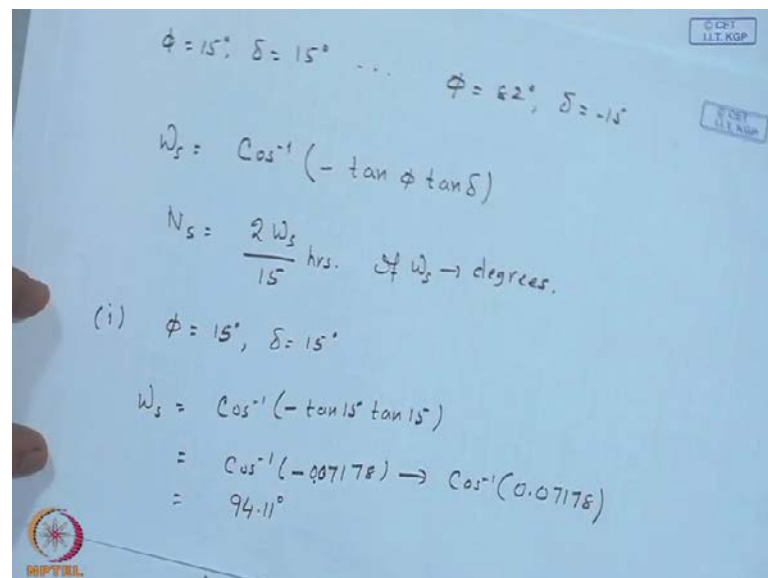 © CET
I.I.T. KGP
φ = 15°, δ = 15° ... φ = 82°, δ = -15
© CET
I.I.T. KGP
Ws = Cos⁻¹ (- tan φ tan δ)
Ns = 2Ws / 15 hrs. If Ws → degrees.
(i) φ = 15°, δ = 15°
Ws = Cos⁻¹ (- tan 15° tan 15°)
= Cos⁻¹ (-0.07178) → Cos⁻¹ (0.07178)
= 94.11°
NPTEL